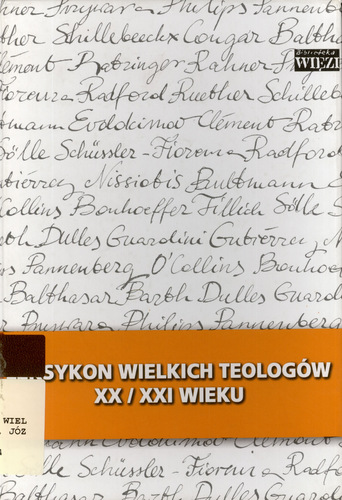 Przywara Philips Pannenberg
Schillebeeckx Congar Balthasar
Biblioteka
WIĘZI
Clément Ratzinger Rahner
Fiorenza Radford Ruether Schillebeeckx
Bultmann Evdokimov Clément Ratzinger
Sölle Schüssler-Fiorenza Radford
Gutiérrez Nissiotis Bultmann
Collins Bonhoeffer Tillich Sölle
Barth Dulles Guardini Gutiérrez
Pannenberg O'Collins Bonhoeffer
Balthasar Barth Dulles Guardini
Przywara Philips Pannenberg
SYKON WIELKICH TEOLOGÓW
XX / XXI WIEKU
WIEL
JÓZ
Bultmann Evdokimov Clément
Sölle Schüssler-Fiorenza Radford
Balthasar Barth Dulles Guardini